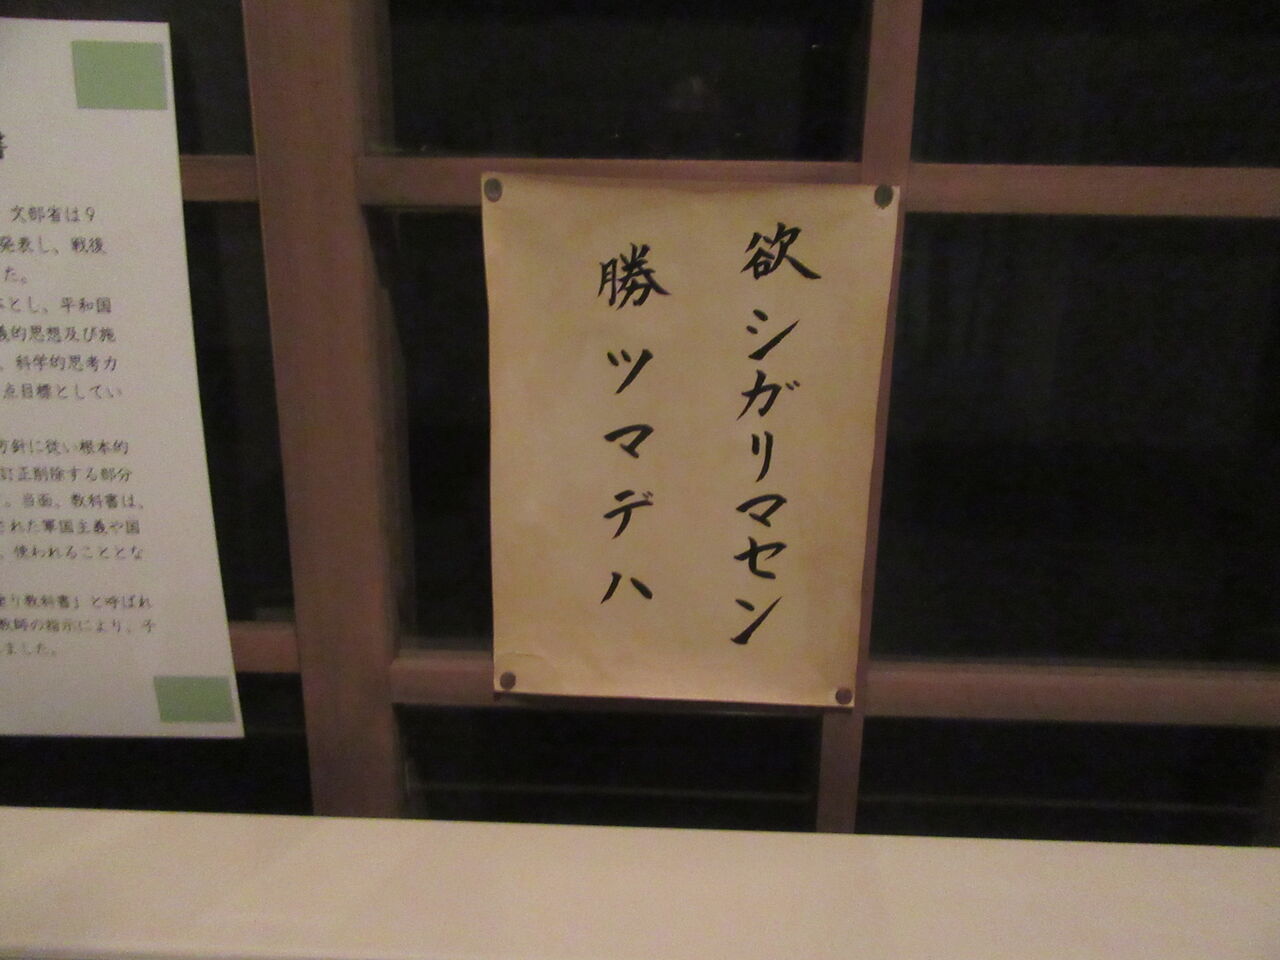 欲シガリマセン
勝ツマデハ
書
文部省は9
発表し、戦後
た。
とし、平和国
義的思想及び施
、科学的思考力
点目標としてい
方針に従い根本的
訂正削除する部分
。当面、教科書は、
された軍国主義や国
、使われることとな
塗り教科書」と呼ばれ
教師の指示により、子
ました。